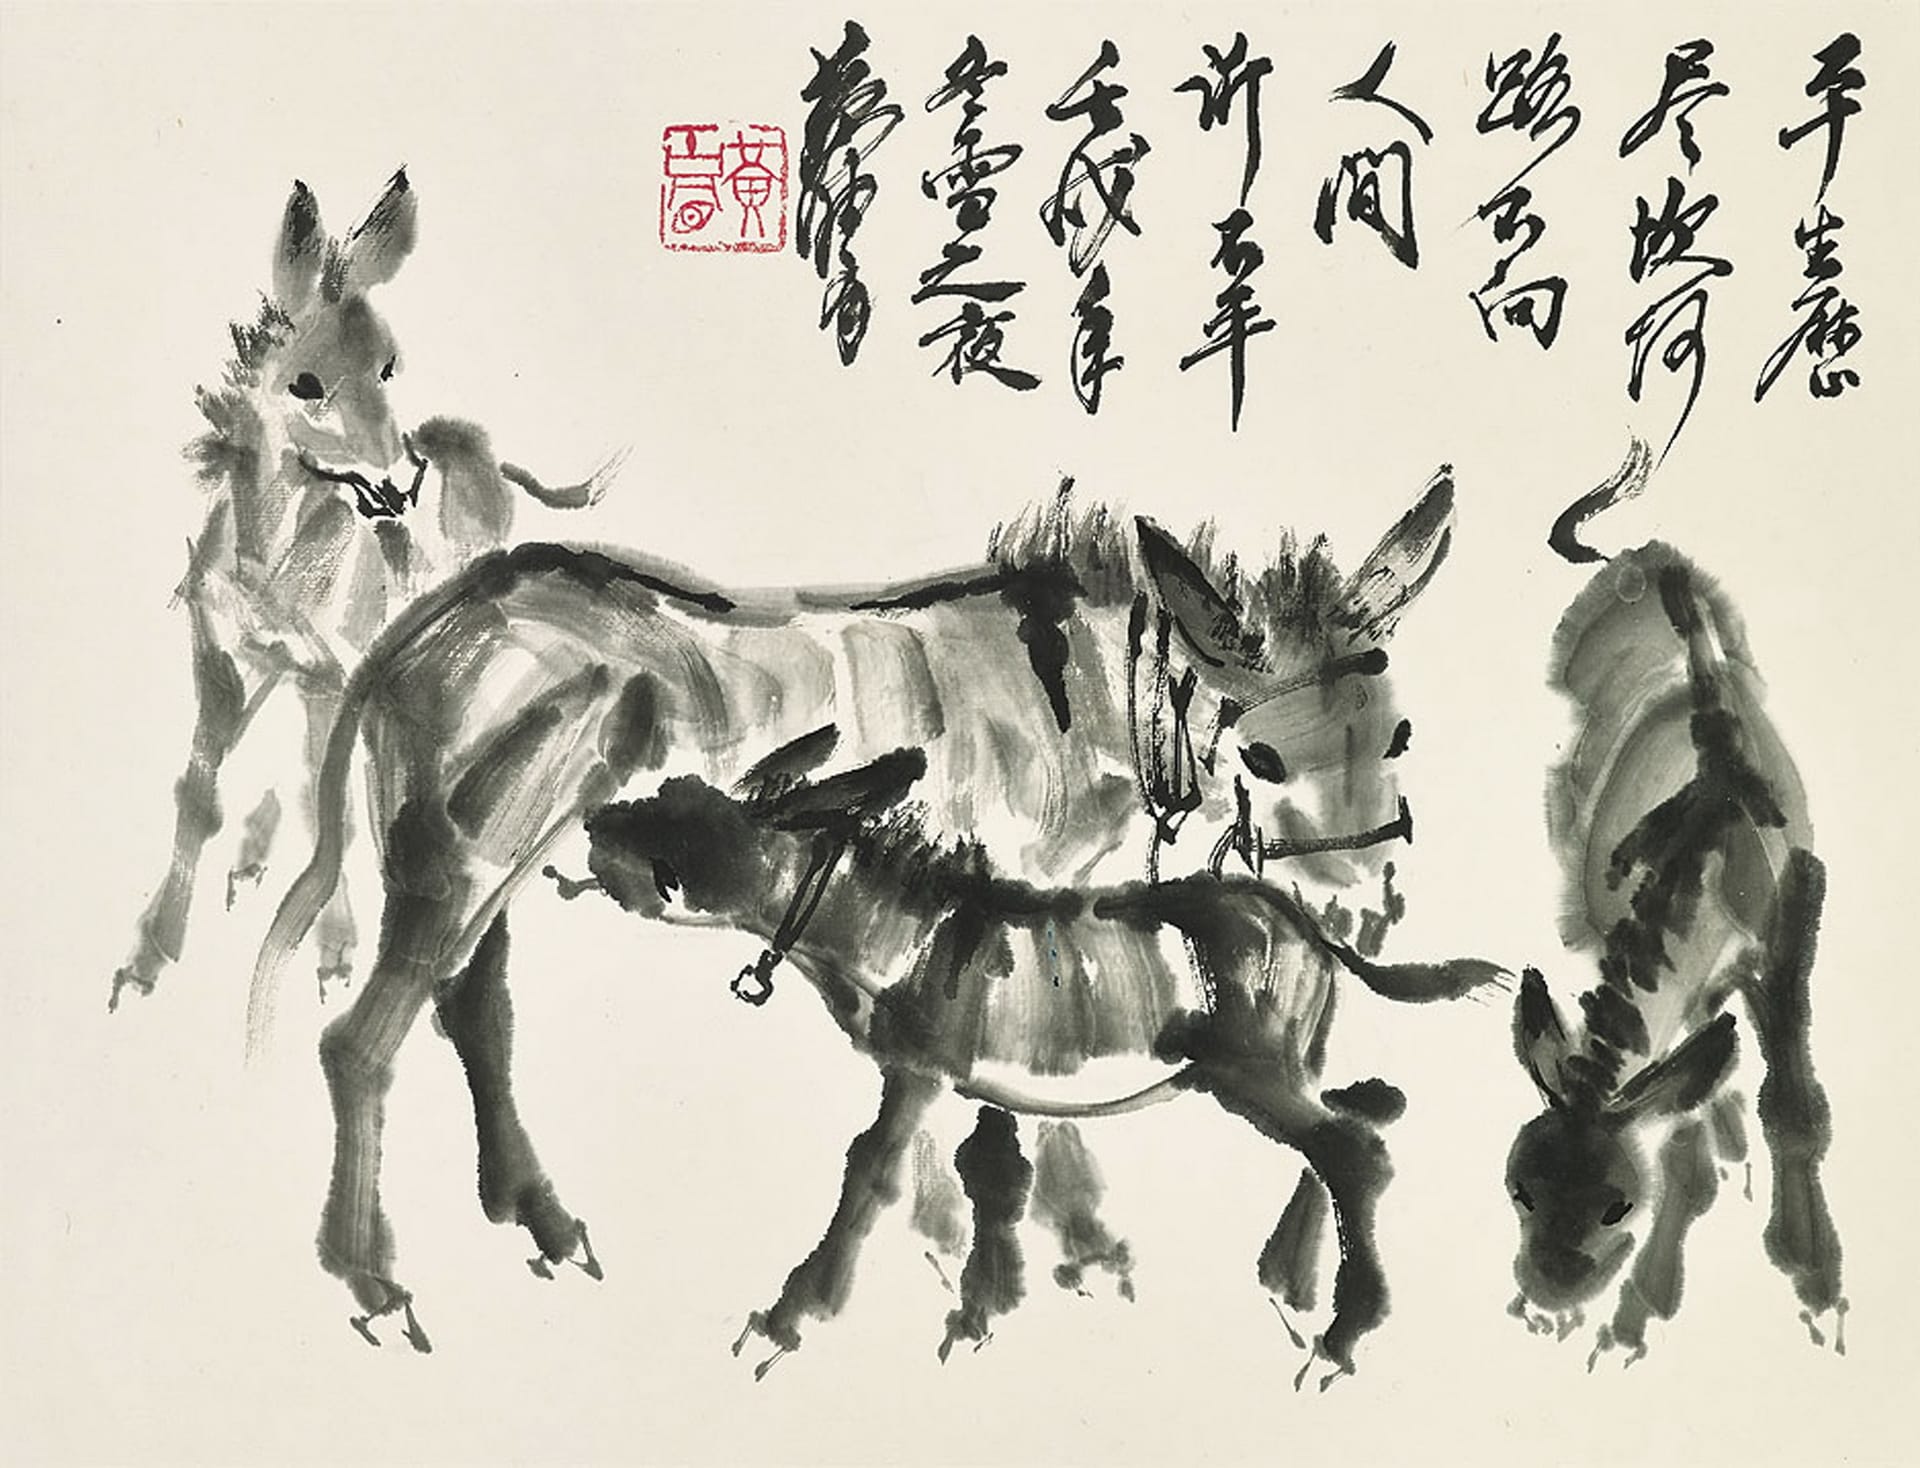 平生歷
尽坎坷
路不向
人間
訴不平
壬戌年
冬雪之夜
黄胄
黄胄